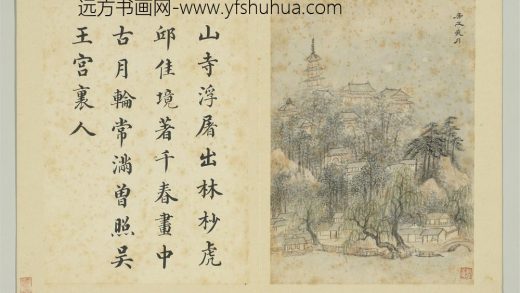 远方书画网- www.yfshuhua.com
山寺浮屠出林杪虎
邱佳境著千春畫中
古月輪常滿曾照吳
王宮裏人